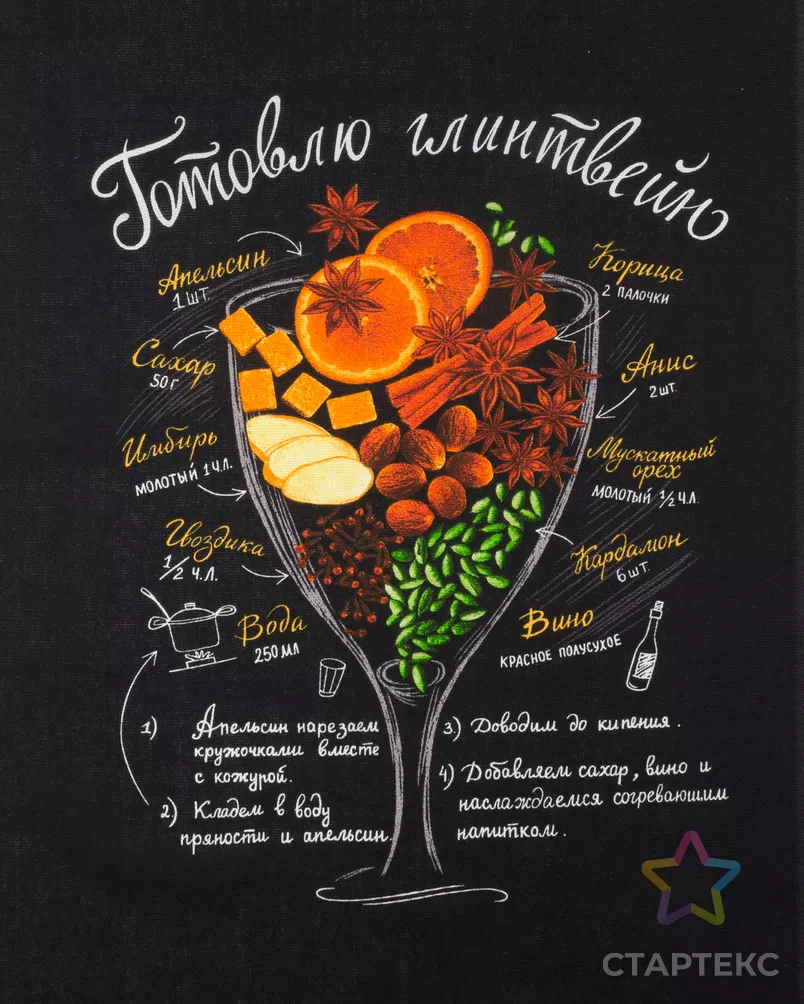 Готовлю глинтвейн
Апельсин
1 шт.
Сахар
50 г
Имбирь
молотый 1 ч.л.
Гвоздика
1/2 ч.л.
Вода
250 мл
Корица
2 палочки
Анис
2 шт.
Мускатный
орех
молотый 1/2 ч.л.
Кардамон
6 шт.
Вино
красное полусухое
1) Апельсин нарезаем
кружочками вместе
с кожурой.
2) Кладем в воду
пряности и апельсин.
3) Доводим до кипения.
4) Добавляем сахар, вино и
наслаждаемся согревающим
напитком.
СТАРТЕКС